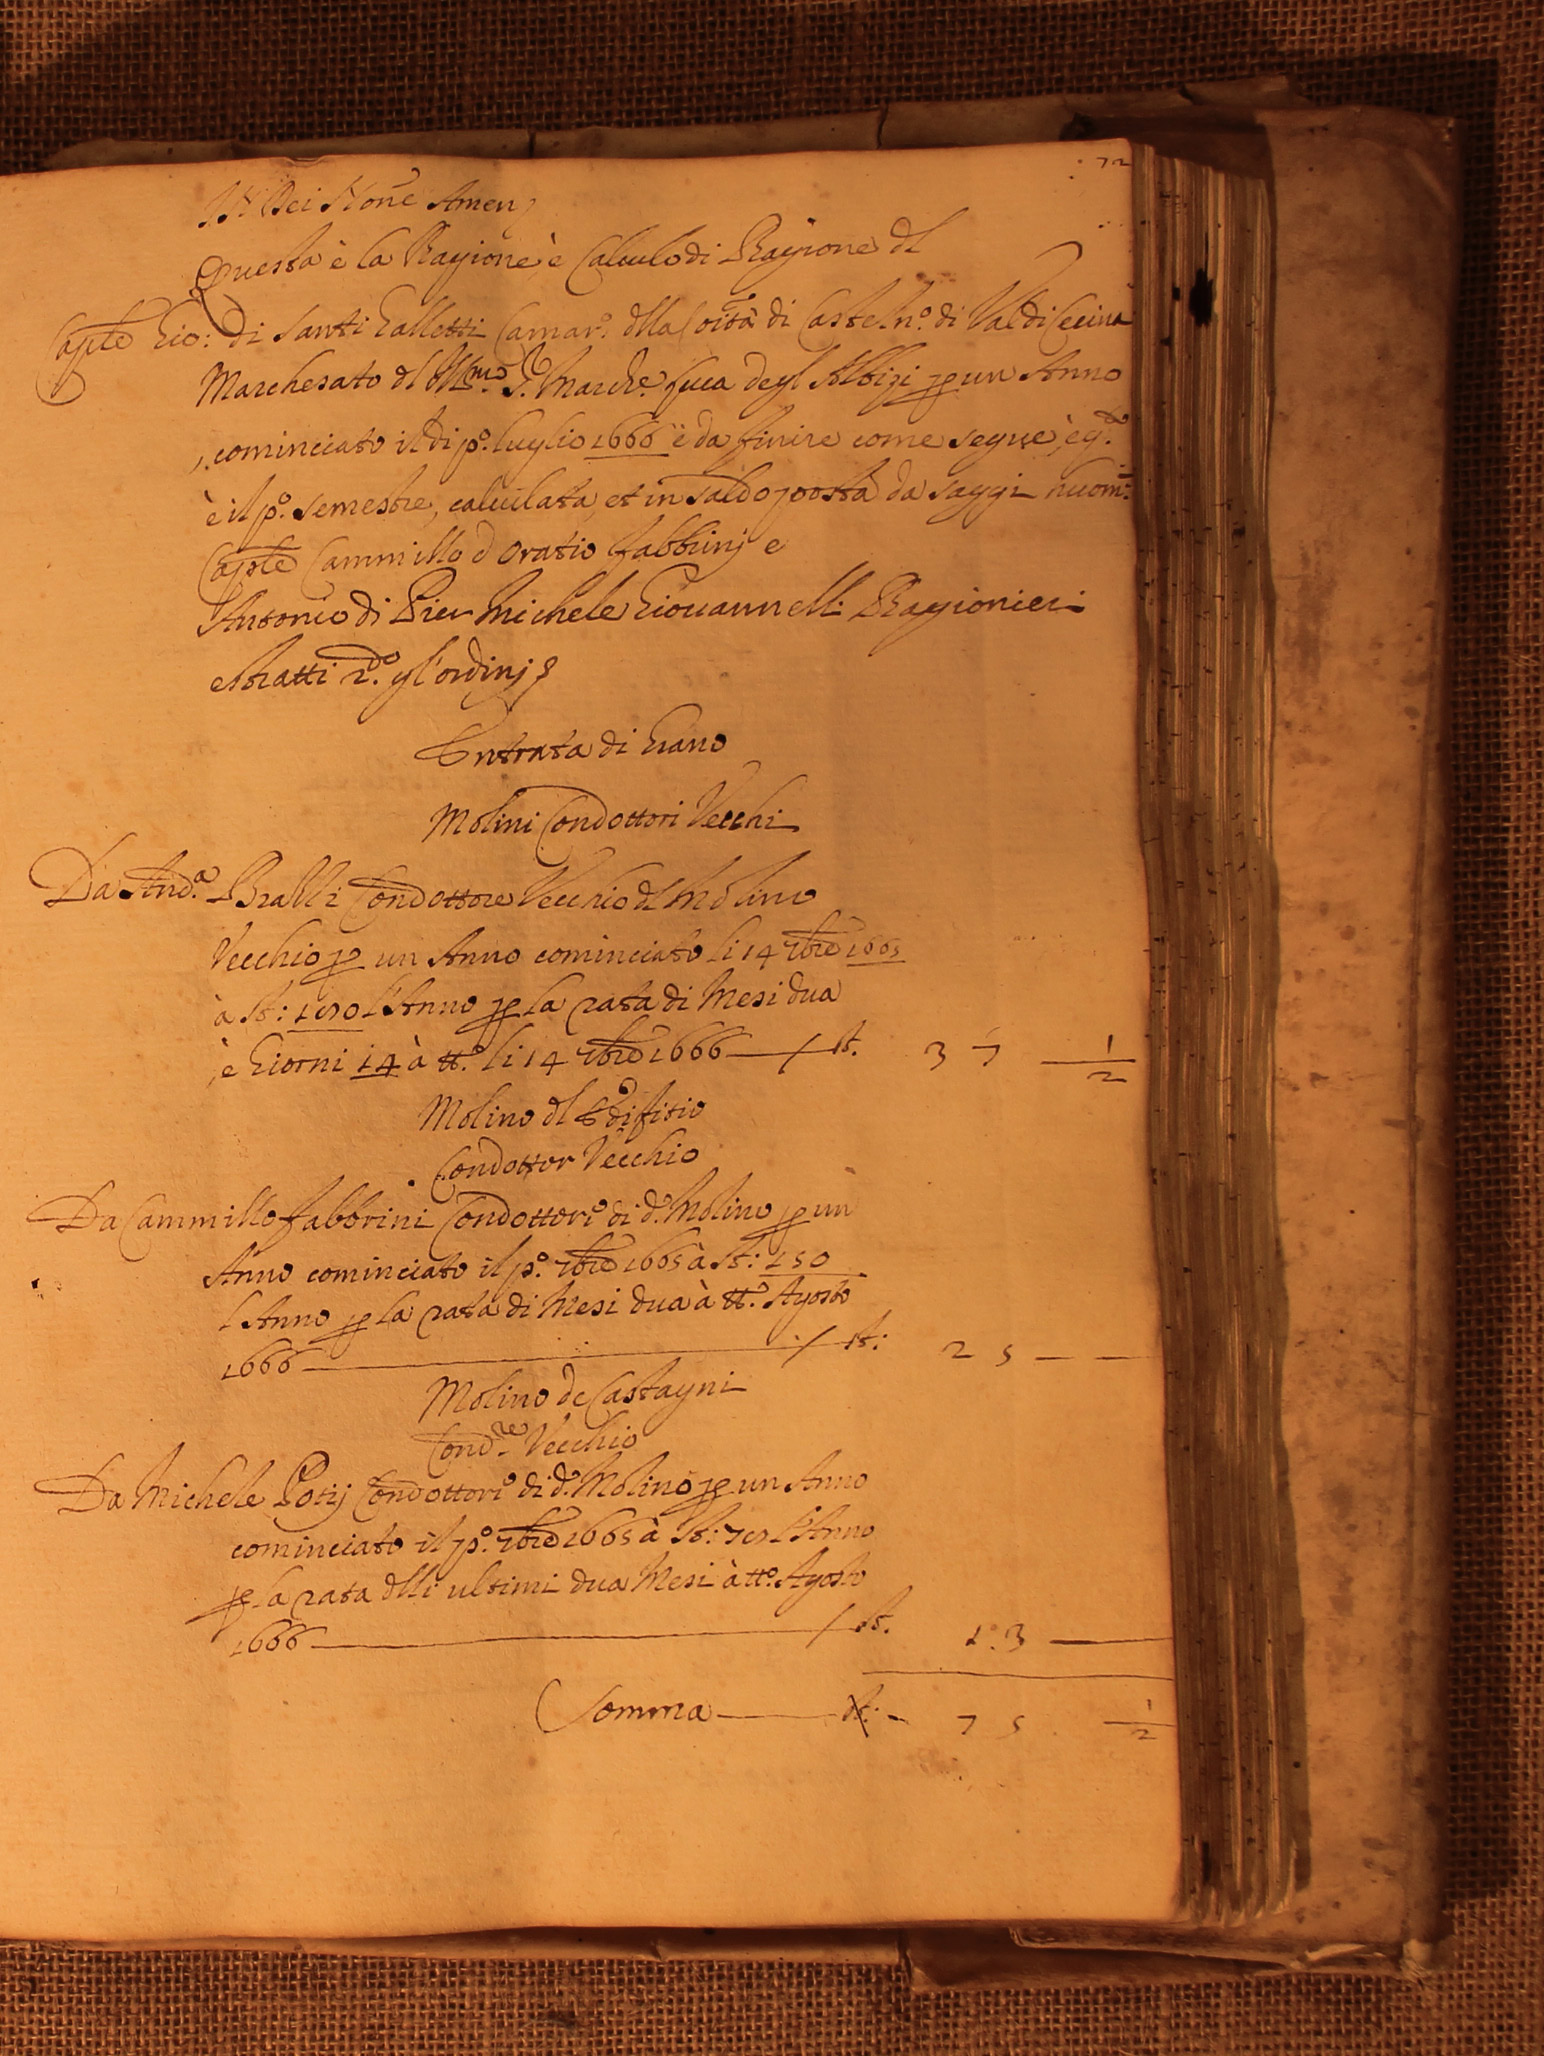 72
In Dei Nõne Amen
Questa è la Ragione, è Calculo di Ragione dl
Capłe Gio: di Santi Galletti Camar.º dlla Coĩtà di Casteln.º di Valdicecina
Marchesato dl Ill.mo S.r March.e Luca degl Albizi p un Anno
cominciato il di p.º Luglio 1666 è da finire come segue, è q.to
è il p.º semestre, calculata, et in saldo posta da saggi huom.
Capłe Cammillo d Oratio Fabbrinj e
Antonio di Pier Michele Giouannelli Ragionieri
estratti 2.do gl'ordinj
Entrata di Grano
Molini Condottori Vecchi
Da And.a Condottore Vecchio dl Molino
Vecchio p un Anno cominciato li 14 7bre 1665
à st: l'Anno p la rata di Mesi dua
è Giorni 14 à tt.º li 14 7bre 1666 — / st. 37 1/2
Molino dl Edifitio
Condottor Vecchio
Da Cammillo Fabbrini Condottore di d.º Molino p un
Anno cominciato il p.º 7bre 1665 à st: 150
l Anno p la rata di Mesi dua à tt.º Agosto
1666 — / st: 25 — —
Molino de Castagni
Cond.re Vecchio
Da Michele Potij Condottore di d.º Molino p un Anno
cominciato il p.º 7bre 1665 à st: l'Anno
p la rata dlli ultimi dua Mesi à tt.º Agosto
1666 — / st. 13 —
Somma — st: 75 1/2